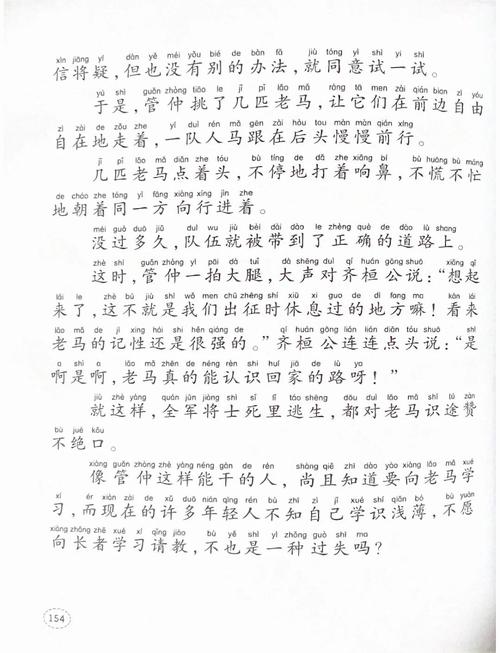 xìn jiāng yí dàn yě méi yǒu bié de bàn fǎ jiù tóng yì shì yi shì
信将疑，但也没有别的办法，就同意试一试。
yú shì guǎn zhòng tiāo le jǐ pǐ lǎo mǎ ràng tā men zài qián bian zì yóu
于是，管仲挑了几匹老马，让它们在前边自由
zì zài de zǒu zhe yí duì rén mǎ gēn zài hòu tou màn màn qián xíng
自在地走着，一队人马跟在后头慢慢前行。
jǐ pǐ lǎo mǎ diǎn zhe tóu bù tíng de dǎ zhe xiǎng bí bù huāng bù máng
几匹老马点着头，不停地打着响鼻，不慌不忙
de cháo zhe tóng yī fāng xiàng xíng jìn zhe
地朝着同一方向行进着。
méi guò duō jiǔ duì wu jiù bèi dài dào le zhèng què de dào lù shang
没过多久，队伍就被带到了正确的道路上。
zhè shí guǎn zhòng yì pāi dà tuǐ dà shēng duì qí huán gōng shuō xiǎng qǐ
这时，管仲一拍大腿，大声对齐桓公说：“想起
lái le zhè bú jiù shì wǒ men chū zhēng shí xiū xi guo de dì fang ma kàn lái
来了，这不就是我们出征时休息过的地方嘛！看来
lǎo mǎ de jì xing hái shi hěn qiáng de qí huán gōng lián lián diǎn tóu shuō shì
老马的记性还是很强的。”齐桓公连连点头说：“是
a shì a lǎo mǎ zhēn de néng rèn shi huí jiā de lù ya
啊是啊，老马真的能认识回家的路呀！”
jiù zhè yàng quán jūn jiàng shì sǐ lǐ táo shēng dōu duì lǎo mǎ shí tú zàn
就这样，全军将士死里逃生，都对老马识途赞
bù jué kǒu
不绝口。
xiàng guǎn zhòng zhè yàng néng gàn de rén shàng qiě zhī dào yào xiàng lǎo mǎ xué
像管仲这样能干的人，尚且知道要向老马学
xí ér xiàn zài de xǔ duō nián qīng rén bù zhī zì jǐ xué shí qiǎn bó bú yuàn
习，而现在的许多年轻人不知自己学识浅薄，不愿
xiàng zhǎng zhě xué xí qǐng jiào bù yě shì yì zhǒng guò shī ma
向长者学习请教，不也是一种过失吗？
154